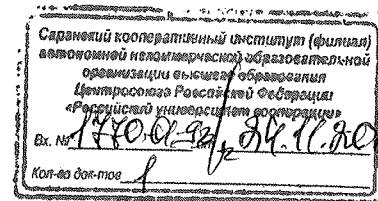 Саранский кооперативный институт (филиал)
автономной некоммерческой образовательной
организации высшего образования
Центросоюза Российской Федерации
«Российский университет кооперации»
Вх. № 24.11.20
Кол-во док-тов 1